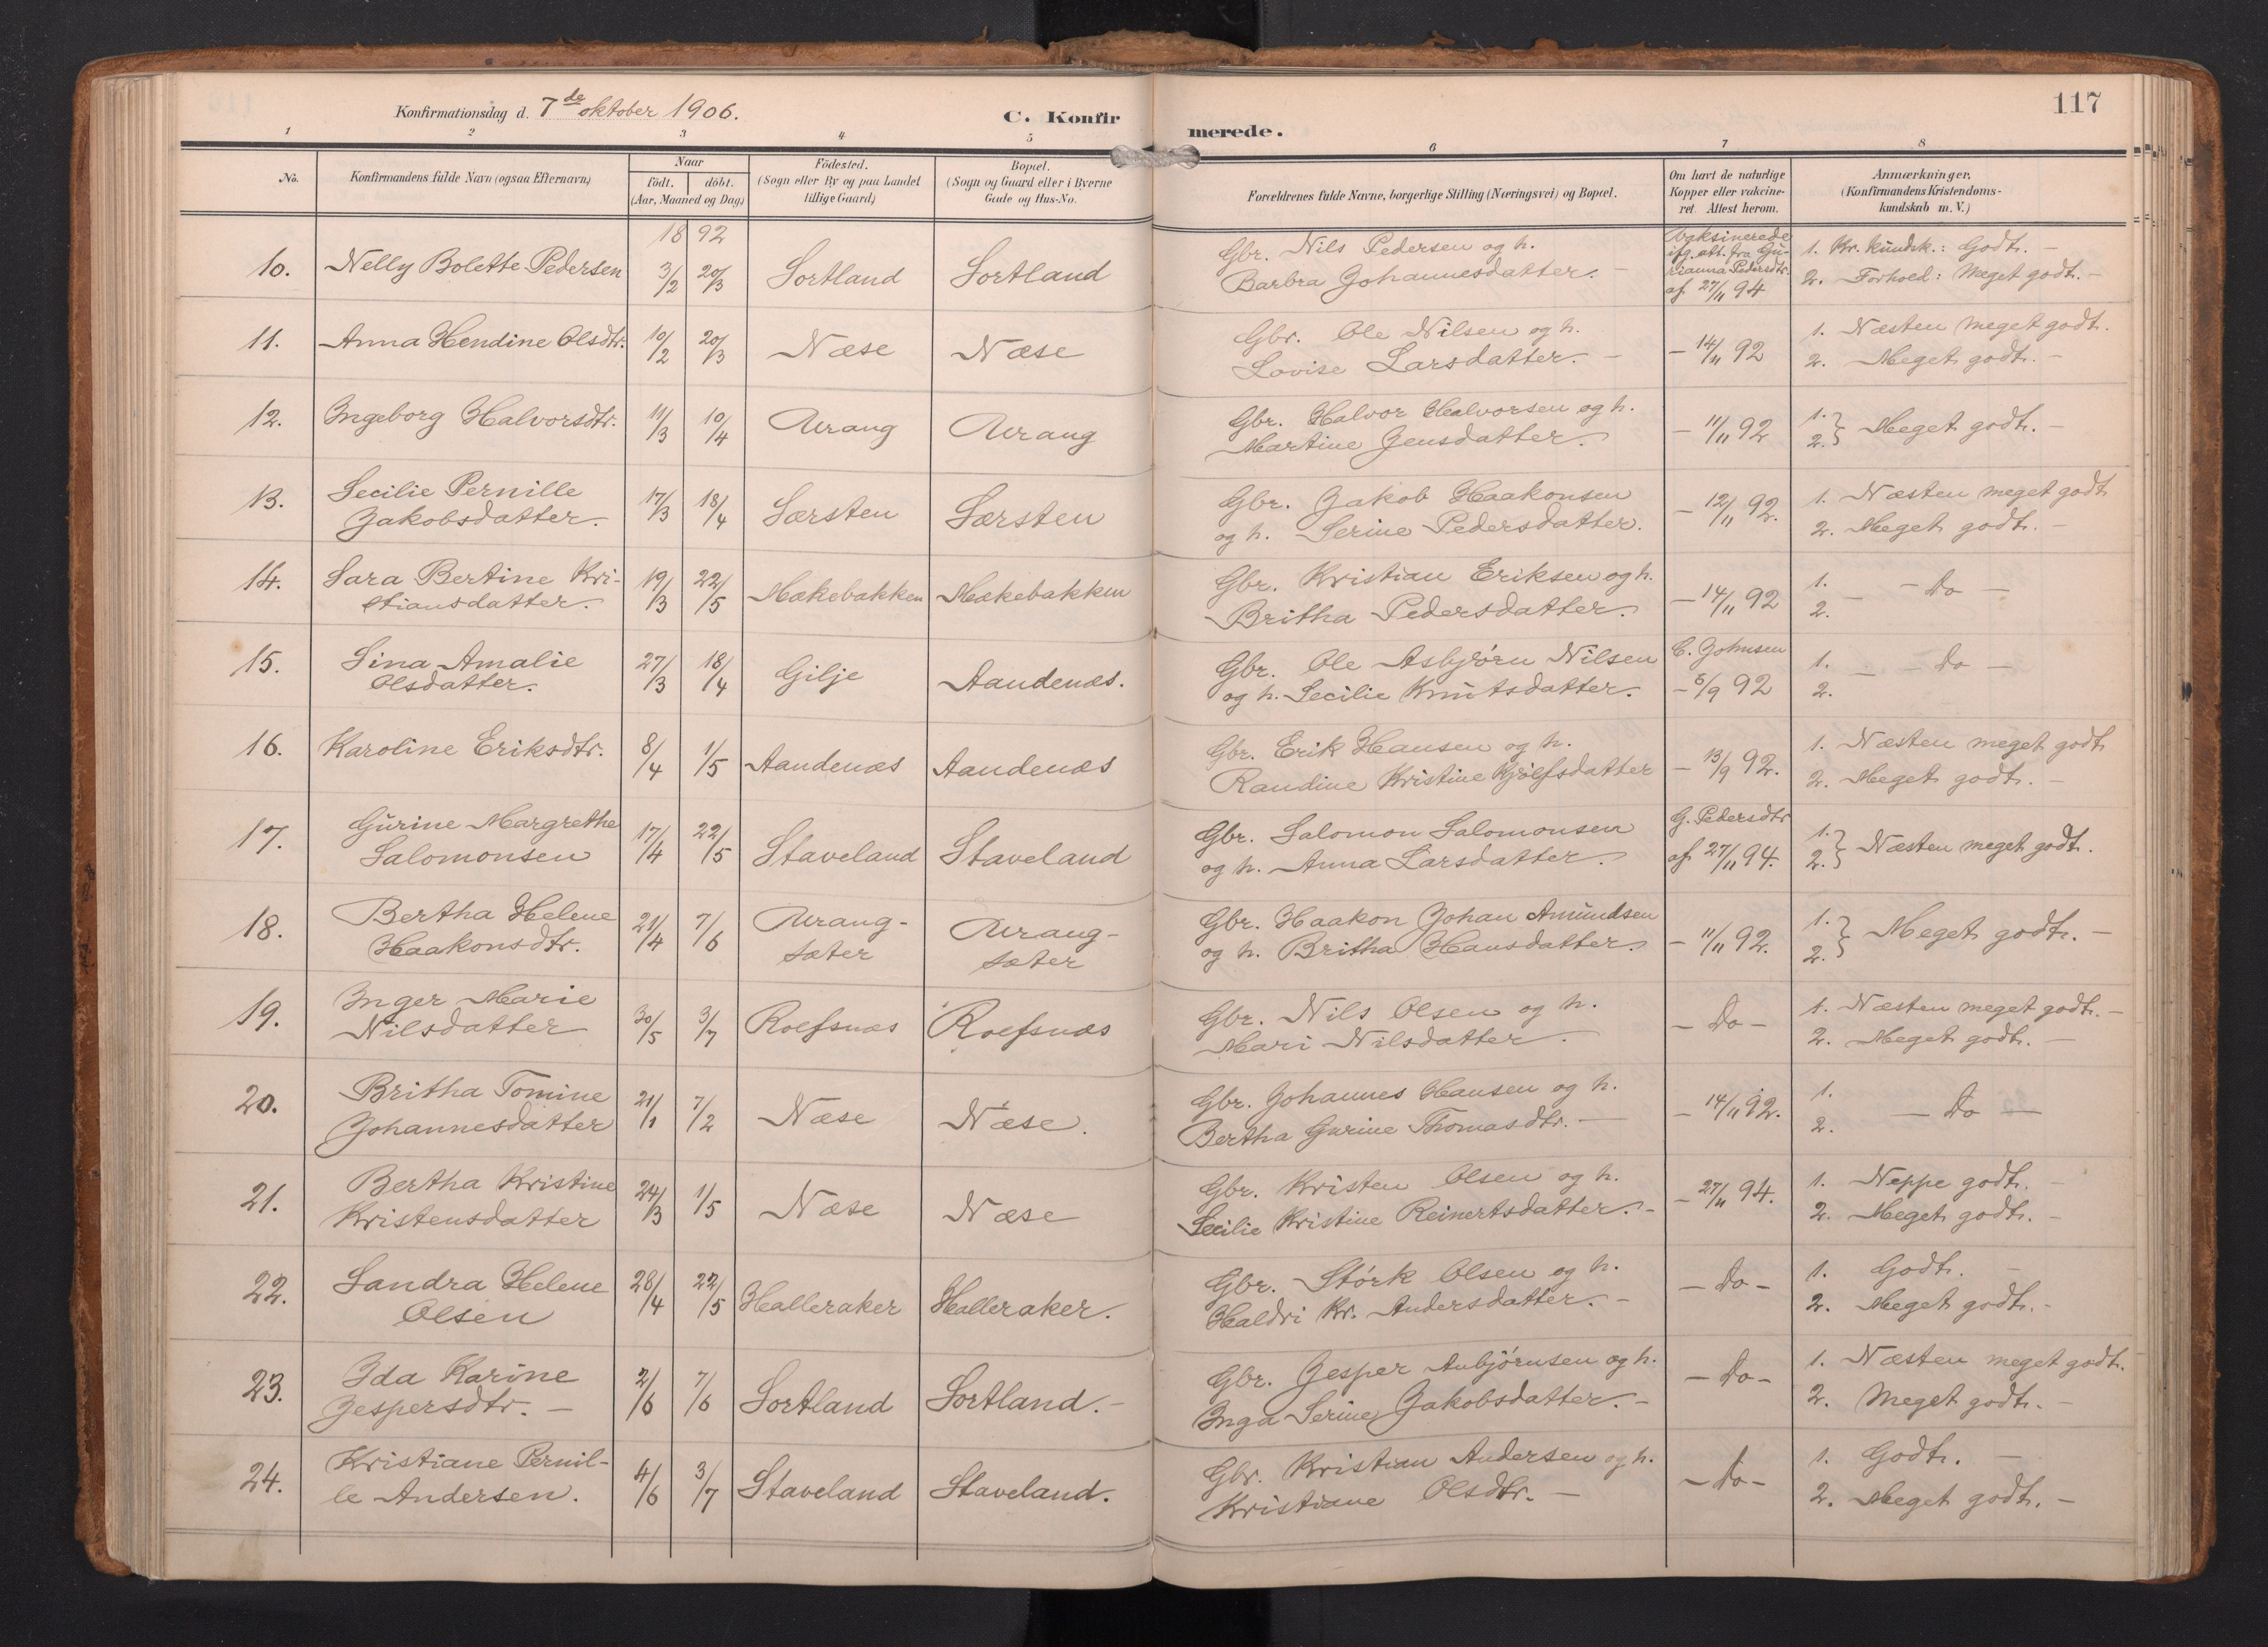 Konfirmationsdag d. 7de oktober 1906.
C. Konfirmerede.
117
1 2 3 4 5 6 7 8
No.
Konfirmandens fulde Navn (ogsaa Efternavn)
Naar
födt. döbt.
(Aar, Maaned og Dag)
Födested.
(Sogn eller By og paa Landet
tillige Gaard)
Bopæl.
(Sogn og Gaard eller i Byerne
Gade og Hus-No.
Forældrenes fulde Navne, borgerlige Stilling (Næringsvei) og Bopæl.
Om havt de naturlige
Kopper eller vakcine-
ret. Attest herom.
Anmærkninger.
(Konfirmandens Kristendoms-
kundskab m. V.)
18 92
10. Nelly Bolette Pedersen 3/2 20/3 Sortland Sortland
Gbr. Nils Pedersen og h.
Barbra Johannesdatter. –
Vaksinerede
ifg. att. fra Gu-
rianna Pedersdtr.
af 27/11 94
1. Kr. kundsk.: Godt. –
2. Forhold: Meget godt. –
11. Anna Hendine Olsdtr. 10/2 20/3 Næse Næse
Gbr. Ole Nilsen og h.
Lovise Larsdatter. –
– 14/11 92
1. Næsten meget godt.
2. Meget godt. –
12. Ingeborg Halvorsdtr. 11/3 10/4 Urang Urang
Gbr. Halvor Halvorsen og h.
Martine Jensdatter.
– 11/11 92
1.
2. } Meget godt. –
13. Secilie Pernille
Jakobsdatter. 17/3 18/4 Særsten Særsten
Gbr. Jakob Haakonsen
og h. Serine Pedersdatter.
– 12/11 92.
1. Næsten meget godt
2. Meget godt. –
14. Sara Bertine Kri-
stiansdatter. 19/3 22/5 Mækebakken Mækebakken
Gbr. Kristian Eriksen og h.
Britha Pedersdatter.
– 14/11 92
1.
2. – – Do –
15. Sina Amalie
Olsdatter. 27/3 18/4 Gilje Aandenæs.
Gbr. Ole Asbjørn Nilsen
og h. Secilie Knutsdatter.
C. Johnsen
– 6/9 92
1.
2. – – Do –
16. Karoline Eriksdtr. 8/4 1/5 Aandenæs Aandenæs
Gbr. Erik Hansen og h.
Randine Kristine Kjølfsdatter
– 13/9 92.
1. Næsten meget godt
2. Meget godt. –
17. Gurine Margrethe
Salomonsen 17/4 22/5 Staveland Staveland
Gbr. Salomon Salomonsen
og h. Anna Larsdatter.
G. Pedersdtr
af 27/11 94.
1.
2. } Næsten meget godt.
18. Bertha Helene
Haakonsdtr. 21/4 7/6 Urang-
sæter Urang-
sæter
Gbr. Haakon Johan Amundsen
og h. Britha Hansdatter.
– 11/11 92.
1.
2. } Meget godt. –
19. Inger Marie
Nilsdatter 30/5 3/7 Rolfsnæs Rolfsnæs
Gbr. Nils Olsen og h.
Mari Nilsdatter.
– Do –
1. Næsten meget godt. –
2. Meget godt. –
20. Britha Tomine
Johannesdatter 21/1 7/2 Næse Næse.
Gbr. Johannes Hansen og h.
Bertha Gurine Thomasdtr. –
– 14/11 92.
1.
2. – Do –
21. Bertha Kristine
Kristensdatter 24/3 1/5 Næse Næse
Gbr. Kristen Olsen og h.
Secilie Kristine Reinertsdatter. –
– 27/11 94.
1. Neppe godt. –
2. Meget godt. –
22. Sandra Helene
Olsen 28/4 22/5 Halleraker Halleraker.
Gbr. Størk Olsen og h.
Haldri Kr. Andersdatter. –
– Do –
1. Godt. –
2. Meget godt. –
23. Ida Karine
Jespersdtr. – 2/6 7/6 Sortland Sortland. –
Gbr. Jesper Anbjørnsen og h.
Inga Serine Jakobsdatter. –
– Do –
1. Næsten meget godt.
2. Meget godt. –
24. Kristiane Pernil-
le Andersen. 4/6 3/7 Staveland Staveland.
Gbr. Kristian Andersen og h.
Kristiane Olsdtr. –
– Do –
1. Godt. –
2. Meget godt. –